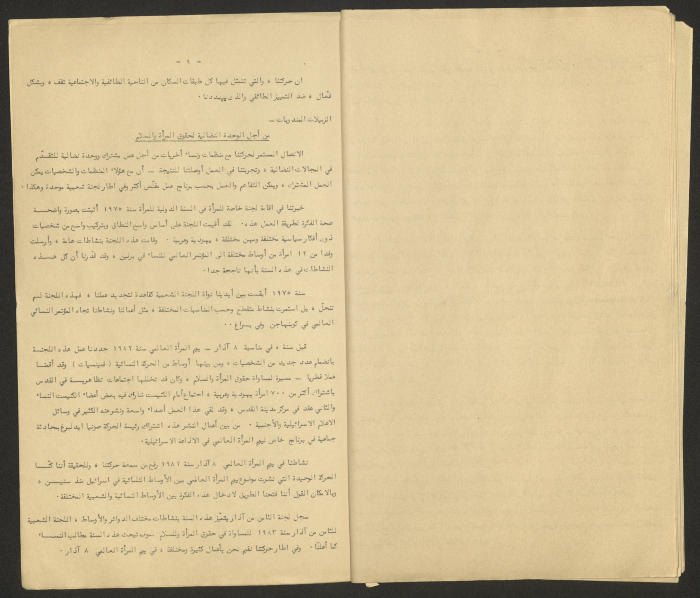 - ٩ -
ان حركتنا ، والتي تتمثل فيها كل طبقات السكان من الناحية الطائفية والاجتماعية تقف ، وبشكل
فعّال ، ضد التمييز الطائفي والذي يهددنا .
الزميلات المندوبات -
من أجل الوحدة النضالية لحقوق المرأة والسلام
الاتصال المستمر لحركتنا مع منظمات ونساء أخريات من أجل عمل مشترك ووحدة نضالية للتقدّم
في المجالات النضالية ، وتجربتنا في العمل أوصلتنا للنتيجة - أن مع هؤلاء المنظمات والشخصيات يمكن
العمل المشترك ، ويمكن التفاهم والعمل بحسب برنامج عمل مقلّص أكثر وفي اطار لجنة شعبية موحدة وهكذا .
خبرتنا في اقامة لجنة خاصة للمرأة في السنة الدولية للمرأة سنة ١٩٧٥ أثبتت بصورة واضحـــة
صحة الفكرة لطريقة العمل هذه . لقد أقيمت اللجنة على أساس واسع النطاق وبتركيب واسع من شخصيات
ذوي أفكار سياسية مختلفة ومهن مختلفة ، يهودية وعربية . وقامت هذه اللجنة بنشاطات هامة ، وأرسلت
وفدا من ١٢ امرأة من أوساط مختلفة الى المؤتمر العالمي للنساء في برلين ، وقد قدّرنا أن كل هـــذه
النشاطات في هذه السنة بأنها ناجحة جدا .
سنة ١٩٧٥ أبقت بين أيدينا نواة اللجنة الشعبية كقاعدة لتجديد عملنا ، فهذه اللجنة لم
تنحلّ ، بل استمرت بنشاط متقطع وحسب المناسبات المختلفة ، مثل أعمالنا ونشاطنا تجاه المؤتمر النسائي
العالمي في كوبنهاجن وفي
قبل سنة ، في مناسبة ٨ آذار - يوم المرأة العالمي سنة ١٩٨٢ جددنا عمل هذه اللجنـــة
بانضمام عدد جديد من الشخصيات ، ومن بينها أوساط من الحركة النسائية ( فمينسيات ) وقد أقمنـا
عملا قطريا - مسيرة لمساواة حقوق المرأة والسلام ، وكان قد تخللها اجتماعات تظاهريـــة في القدس
باشتراك أكثر من ٧٠٠ امرأة يهودية وعربية ، اجتماع أمام الكنيست شارك فيه بعض أعضاء الكنيست النساء
والثاني عقد في مركز مدينة القدس ، وقد لقي هذا العمل أصداء واسعة ونشرعنه الكثير في وسائل
الاعلام الاسرائيلية والأجنبية . من بين أعمال النشر هذه اشتراك رئيسة الحركة صونيا ايدلبرغ بمحادثة
جماعية في برنامج خاص ليوم المرأة العالمي في الاذاعة الاسرائيلية .
نشاطنا في يوم المرأة العالمي ٨ آذار سنة ١٩٨٢ رفع من سمعة حركتنا ، وللحقيقة أننا كنّـــا
الحركة الوحيدة التي نشرت موضوع يوم المرأة العالمي بين الأوساط النسائية في اسرائيل منذ سنيـــن ،
وبالامكان القول أننا فتحنا الطريق لادخال هذه الفكرة بين الأوساط النسائية والشعبية المختلفة .
سجل لجنة الثامن من آذار يشمل هذه السنة بنشاطات مختلف الدوائر والأوساط ، اللجنة الشعبية
للثامن من آذار سنة ١٩٨٣ للمساواة في حقوق المرأة وللسلام سوف تبحث هذه السنة مطالب النســـاء
كما أعلنّا . وفي اطار حركتنا نقيم نحن بأعمال كثيرة ومختلفة ، في يوم المرأة العالمي ٨ آذار .